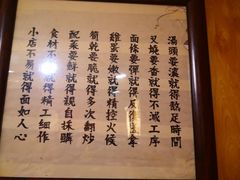 湯頭要濃就得熬足時間
叉燒要香就得不減工序
面條要彈就得反復手拿
雞蛋要嫩就得精控火候
筍乾要脆就得多次翻炒
配菜要鮮就得親自採購
食材不易就得精工細作
小店不易就得面如人心